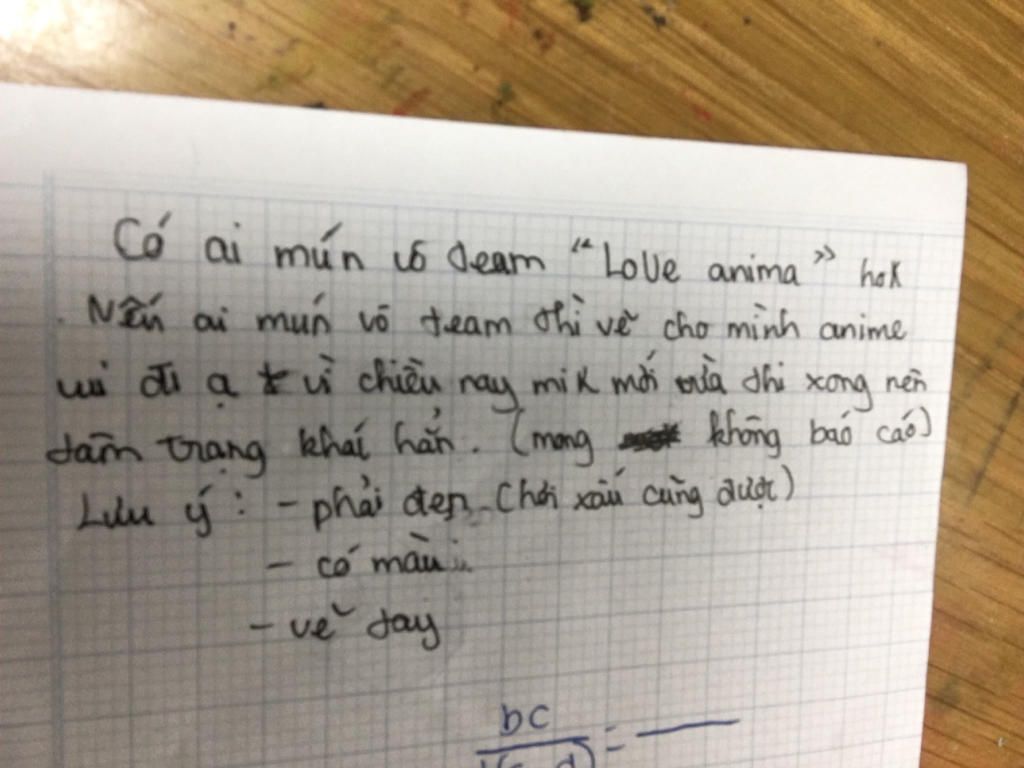 Có ai mún vô team "Love anima" hok
. Nếu ai mún vô team thì vẽ cho mình anime
vui đi ạ vì chiều nay mik mới vừa thi xong nên
tâm trạng khá hẳn. (mong không báo cáo)
Lưu ý: - phải đẹp (hơi xấu cũng được)
- có màu
- vẽ tay
bc
=